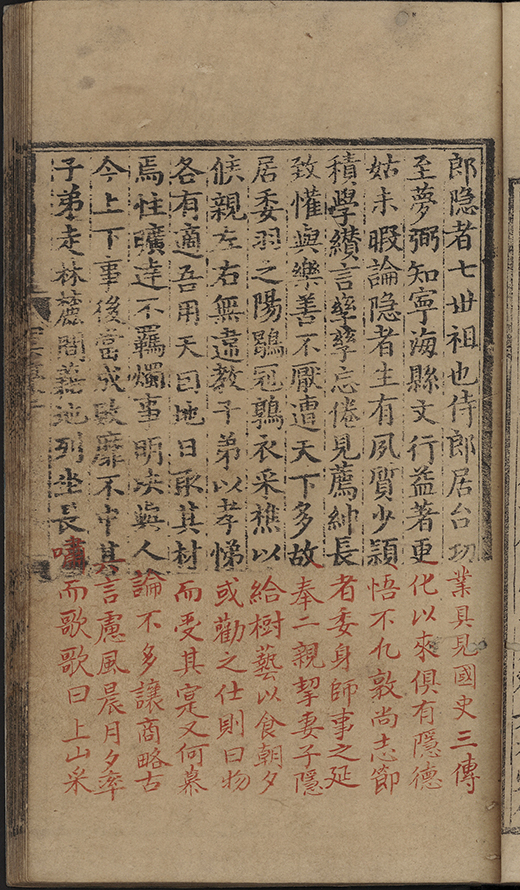 郎隐者七世祖也侍郎居台功業具見國史三傳
至夢弼知寧海縣文行益著更化以來俱有隱德
姑未暇論隐者生有夙質少穎悟不凢敦尚志節
積學纘言孳孳忘倦見薦紳長者委身師事之延
致懽與樂善不厭遭天下多故奉二親挈妻子隱
居委羽之陽鶡冠鶉衣采樵以給樹藝以食朝夕
候親左右無違教子弟以孝悌或勸之仕則曰物
各有適吾用天因地日取其材而受其寔又何慕
焉性曠逹不羈燭事明决與人論不多讓商略古
今上下事後當成敗靡不中其言慮風晨月夕率
子弟走林麓間藉地列坐長嘯而歌歌曰上山采